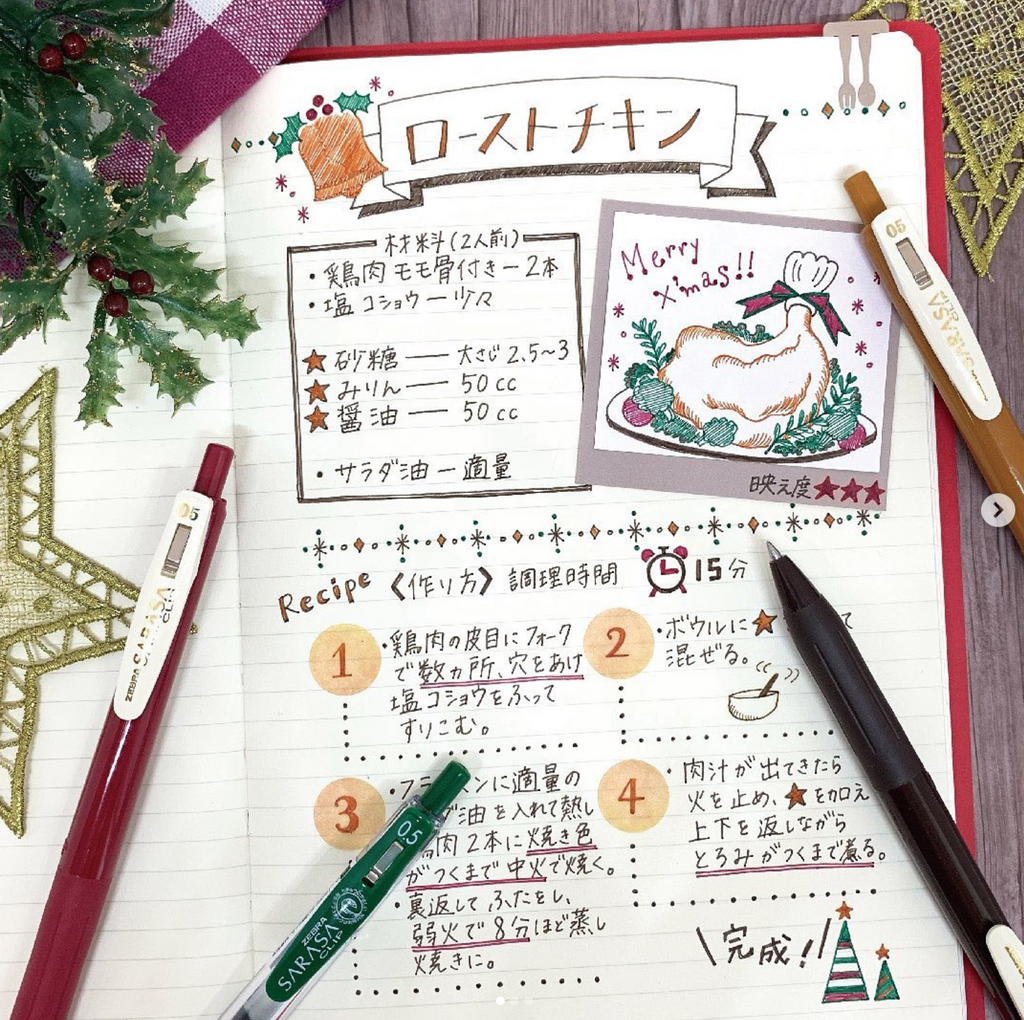 ローストチキン
材料(2人前)
・鶏肉モモ骨付きー2本
・塩コショウー少々
★砂糖 ── 大さじ2.5~3
★みりん ── 50cc
★醤油 ── 50cc
・サラダ油ー適量
Merry
x'mas!!
映え度★★★
Recipe 〈作り方〉 調理時間 15分
1
・鶏肉の皮目にフォーク
で数カ所、穴をあけ
塩コショウをふって
すりこむ。
2
・ボウルに★ て
混ぜる。
3
・フラ ンに適量の
ダ油を入れて熱し
肉2本に焼き色
がつくまで中火で焼く。
・裏返してふたをし、
弱火で8分ほど蒸し
焼きに。
4
・肉汁が出てきたら
火を止め、★を加え
上下を返しながら
とろみがつくまで煮る。
\完成!/
05
ZEBRA SARASA CLIP
05
ZEBRA
SARASA
CLIP
05
SARASA